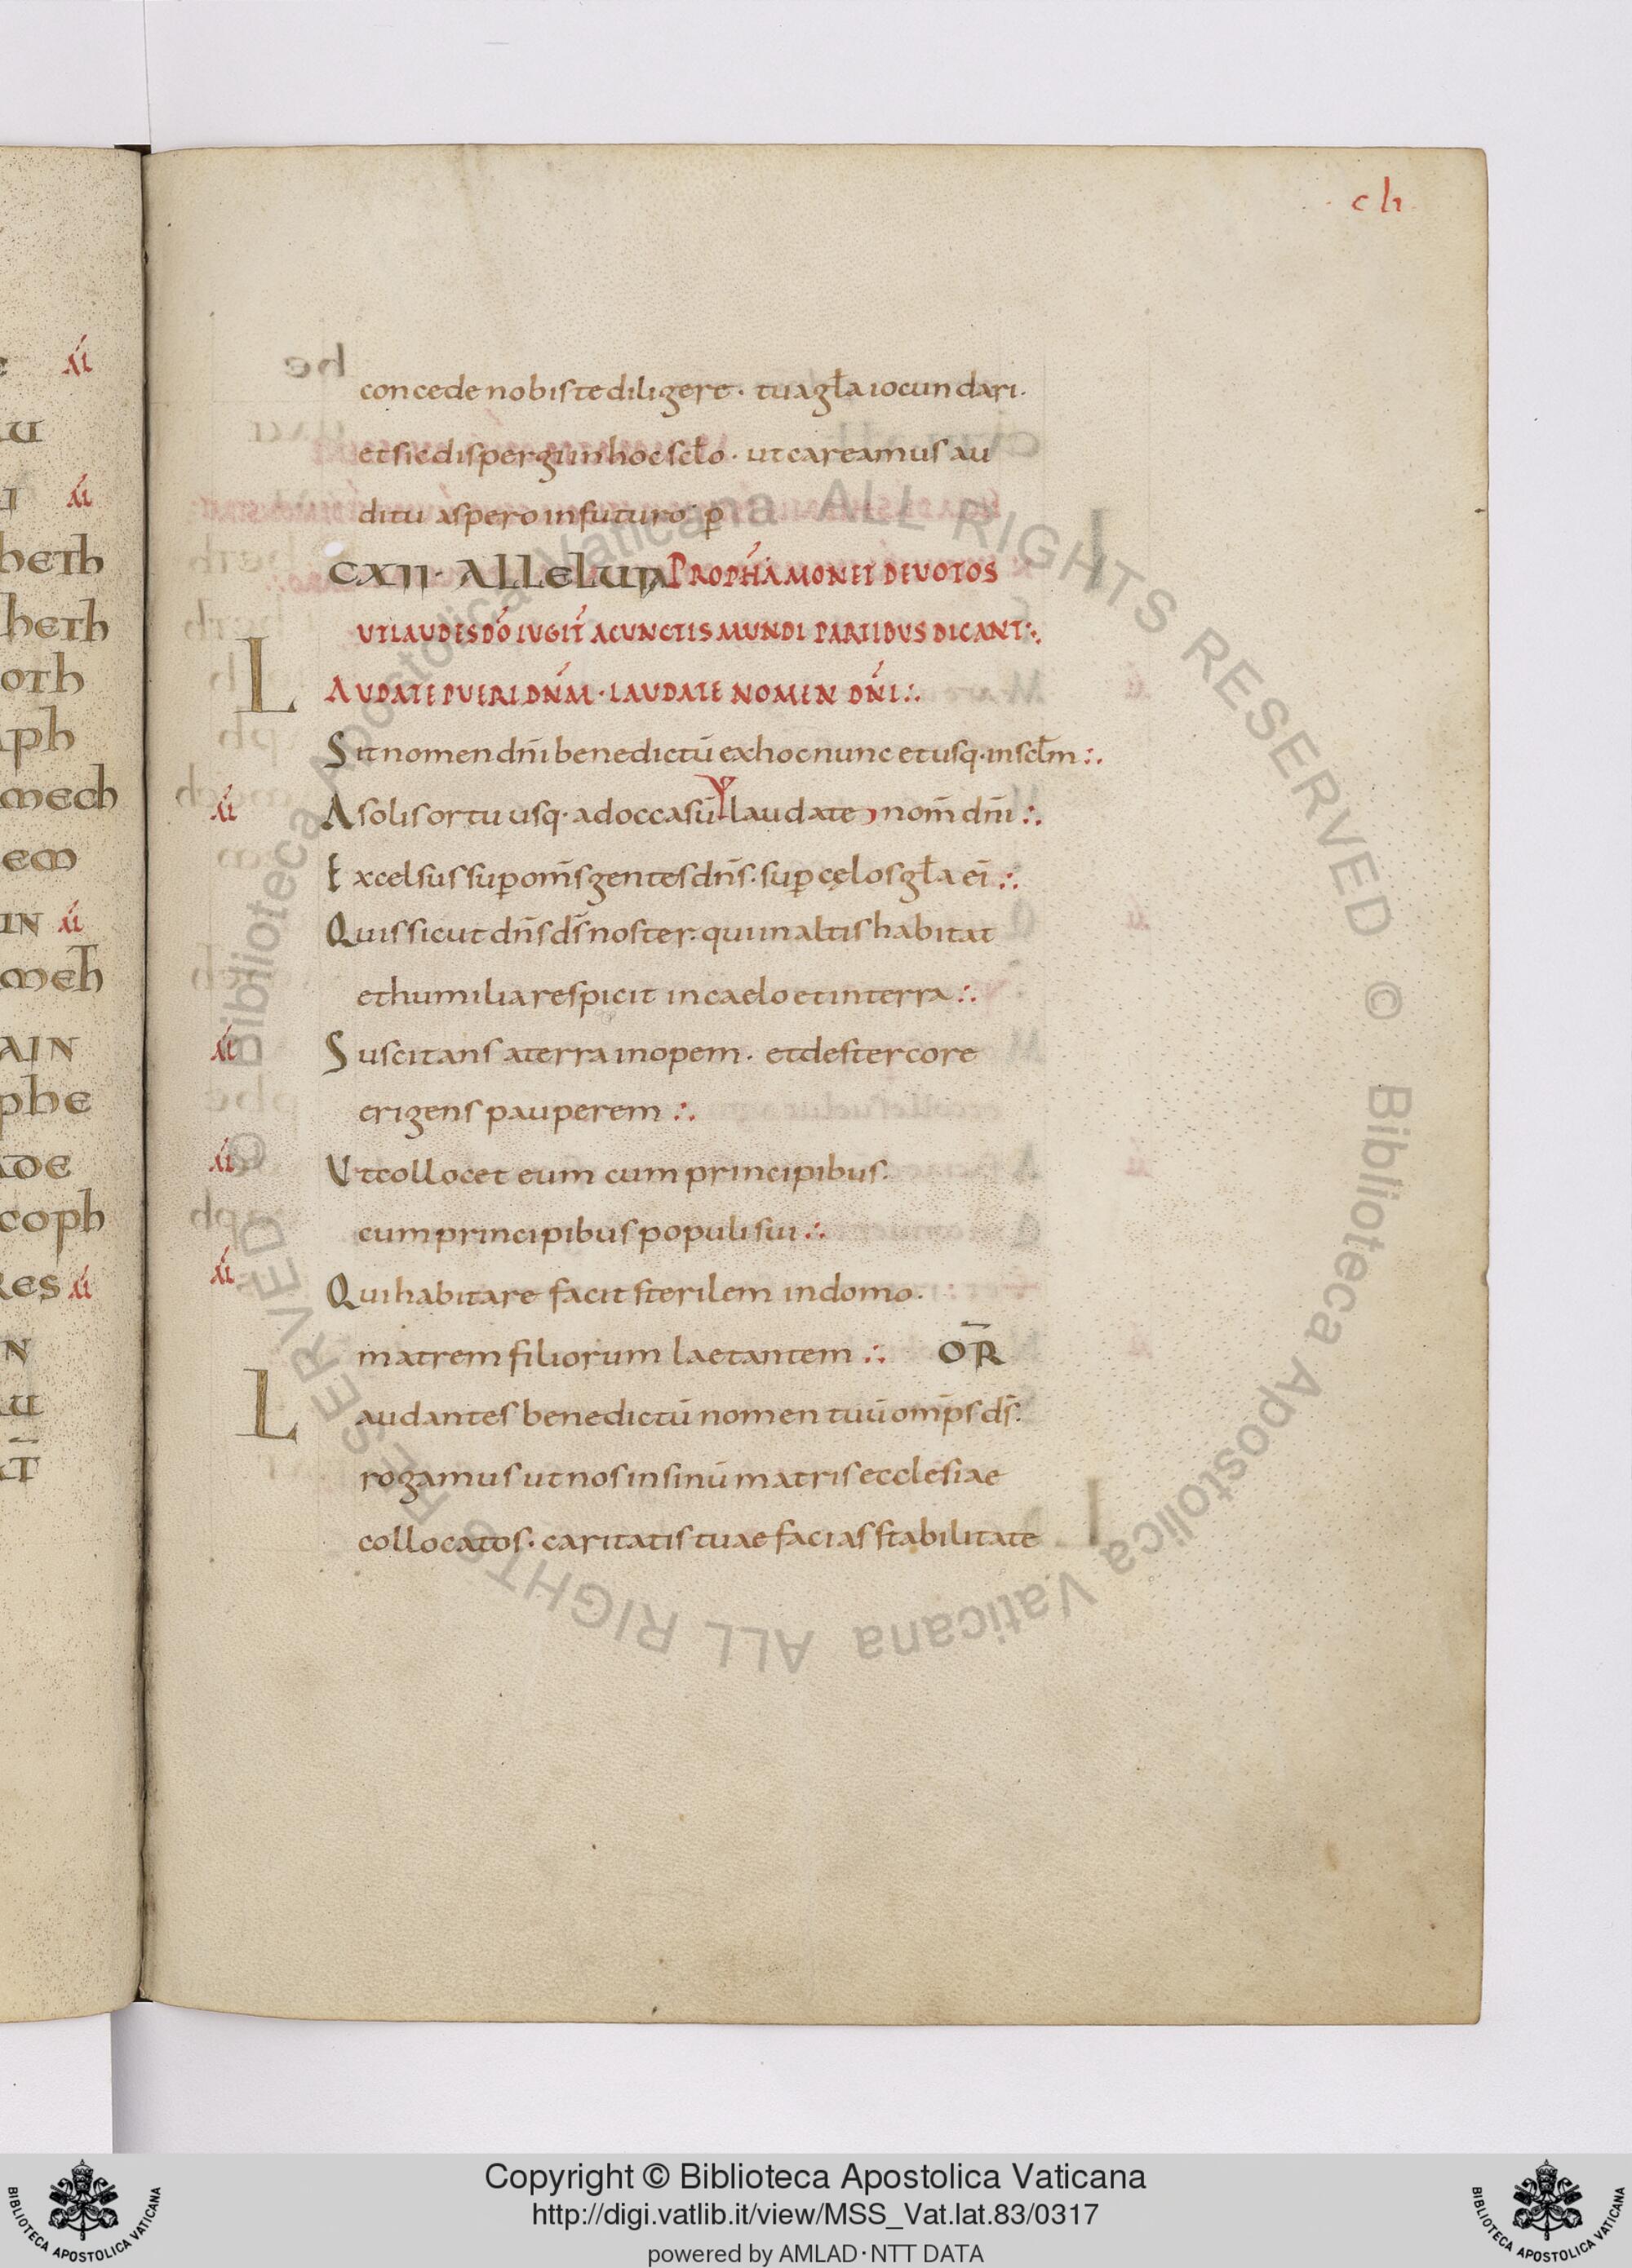 ch
concede nobis te diligere · tua gła iocundari ·
et sic dispergi in hoc scło · ut careamus au
ditu aspero in futuro · ꝑ
CXII · ALLELUIA PROPHA MONET DEUOTOS
UT LAUDES DŌ IUGIT A CUNCTIS MUNDI PARTIBUS DICANT ∴
LAUDATE PUERI DN̄M · LAUDATE NOMEN DN̄I ∴
Sit nomen dn̄i benedictū ex hoc nunc et usq · in scłm ∴
Ā A solis ortu usq · ad occasū laudate nom̄ dn̄i ∴
Excelsus suꝑ om̄s gentes dn̄s · suꝑ cęlos gła ei ∴
Quis sicut dn̄s ds̄ noster · qui in altis habitat
et humilia respicit in caelo et in terra ∴
Suscitans a terra inopem · et de stercore
erigens pauperem ∴
Ut collocet eum cum principibus ·
cum principibus populi sui ∴
Qui habitare facit sterilem in domo ·
matrem filiorum laetantem ∴ OR̄
Laudantes benedictū nomen tuū om̄ps ds̄ ·
rogamus ut nos in sinū matris ecclesiae
collocatos · caritatis tuae facias stabilitate
Copyright © Biblioteca Apostolica Vaticana
http://digi.vatlib.it/view/MSS_Vat.lat.83/0317
powered by AMLAD·NTT DATA